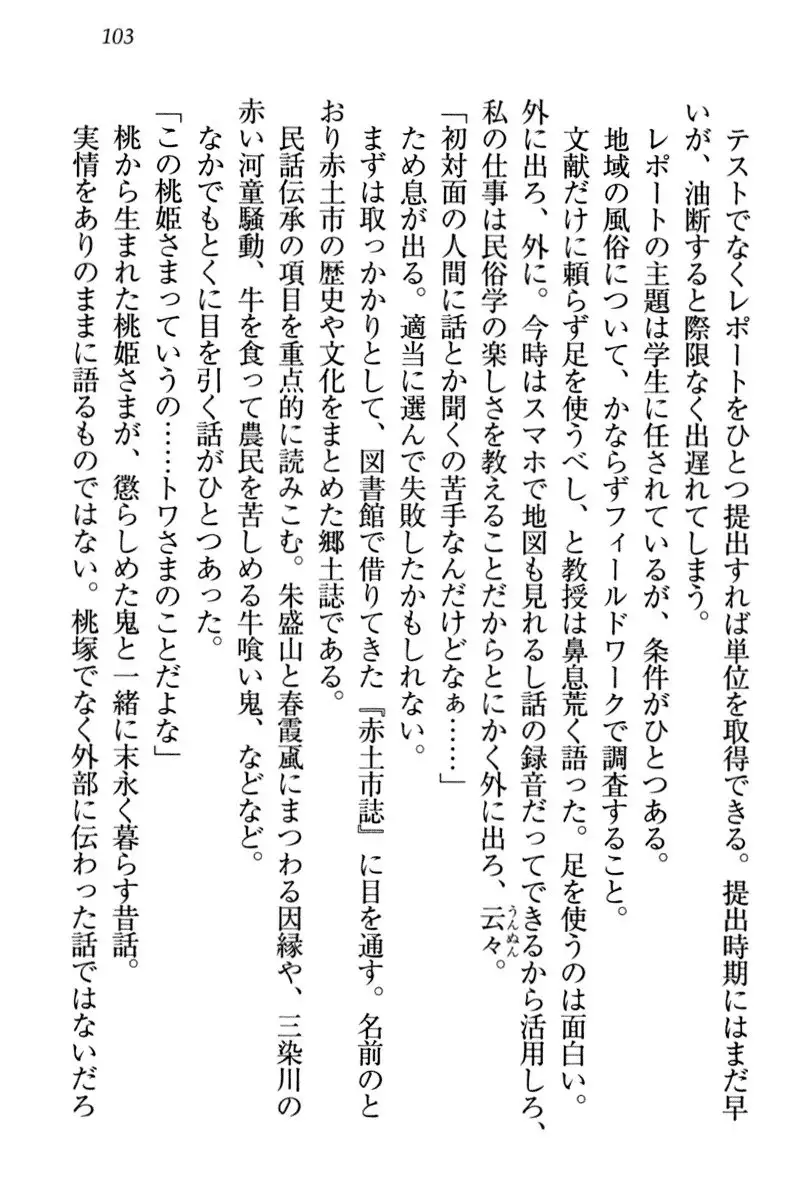 103
テストでなくレポートをひとつ提出すれば単位を取得できる。提出時期にはまだ早
いが、油断すると際限なく出遅れてしまう。
レポートの主題は学生に任されているが、条件がひとつある。
地域の風俗について、かならずフィールドワークで調査すること。
文献だけに頼らず足を使うべし、と教授は鼻息荒く語った。足を使うのは面白い。
外に出ろ、外に。今時はスマホで地図も見れるし話の録音だってできるから活用しろ、
私の仕事は民俗学の楽しさを教えることだからとにかく外に出ろ、云々。
うんぬん
「初対面の人間に話とか聞くの苦手なんだけどなぁ……」
ため息が出る。適当に選んで失敗したかもしれない。
まずは取っかかりとして、図書館で借りてきた『赤土市誌』に目を通す。名前のと
おり赤土市の歴史や文化をまとめた郷土誌である。
民話伝承の項目を重点的に読みこむ。朱盛山と春霞颪にまつわる因縁や、三染川の
赤い河童騒動、牛を食って農民を苦しめる牛喰い鬼、などなど。
なかでもとくに目を引く話がひとつあった。
「この桃姫さまっていうの……トワさまのことだよな」
桃から生まれた桃姫さまが、懲らしめた鬼と一緒に末永く暮らす昔話。
実情をありのままに語るものではない。桃塚でなく外部に伝わった話ではないだろ